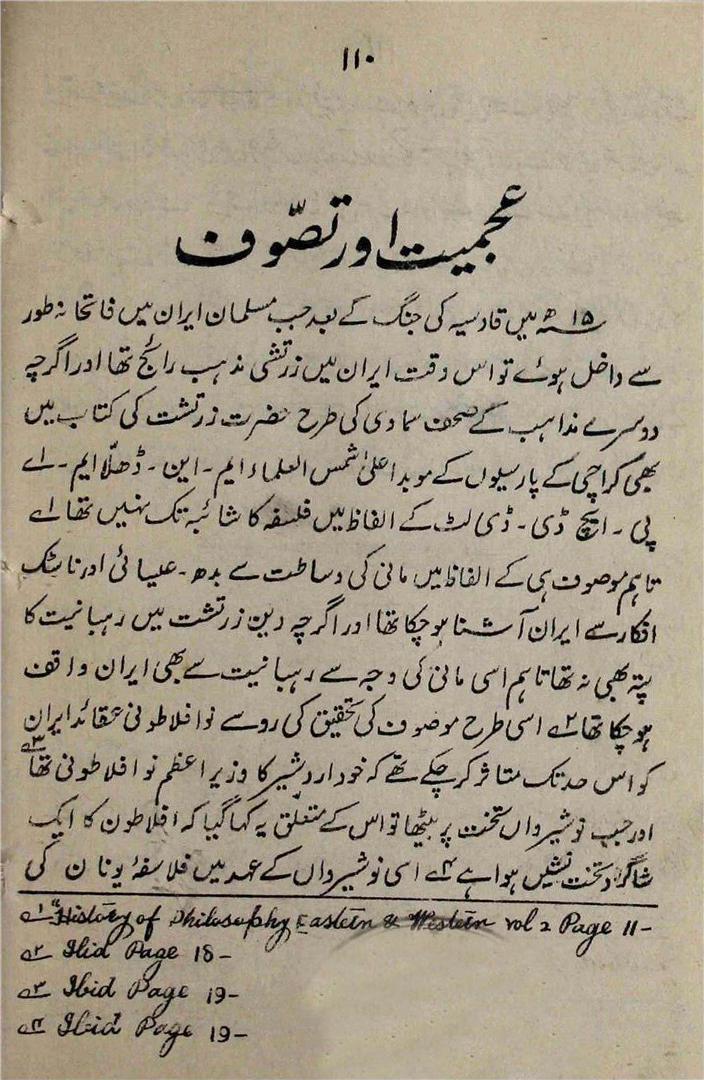 ۱۱۰
عجمیت اور تصوّف
۱۵ھ میں قادسیہ کی جنگ کے بعد جب مسلمان ایران میں فاتحانہ طور
سے داخل ہوئے تو اس وقت ایران میں زرتشی مذہب رائج تھا اور اگرچہ
دوسرے مذاہب کے صحف سماوی کی طرح حضرت زرتشت کی کتاب میں
بھی کراچی کے پارسیوں کے موبد اعلیٰ شمس العلماء ایم۔ این۔ ڈھلّا ایم۔ اے
پی۔ ایچ ڈی۔ ڈی لٹ کے الفاظ میں فلسفہ کا شائبہ تک نہیں تھا ۱؎
تاہم موصوف ہی کے الفاظ میں مانی کی وساطت سے بدھ۔ عیسائی اور ناسٹک
افکار سے ایران آشنا ہو چکا تھا اور اگرچہ دین زرتشت میں رہبانیت کا
پتہ بھی نہ تھا تاہم اسی مانی کی وجہ سے رہبانیت سے بھی ایران واقف
ہو چکا تھا ۲؎ اسی طرح موصوف کی تحقیق کی رو سے نوافلاطونی عقائد ایران
کو اس حد تک متاثر کر چکے تھے کہ خود اردشیر کا وزیر اعظم نوافلاطونی تھا ۳؎
اور جب نوشیرواں تخت پر بیٹھا تو اس کے متعلق یہ کہا گیا کہ افلاطون کا ایک
شاگرد تخت نشیں ہوا ہے ۴؎ اسی نوشیرواں کے عہد میں فلاسفۂ یونان کی
۱؎ "History of Philosophy Eastern & Western vol 2 Page 11-
۲؎ Ibid Page 18-
۳؎ Ibid Page 19-
۴؎ Ibid Page 19-